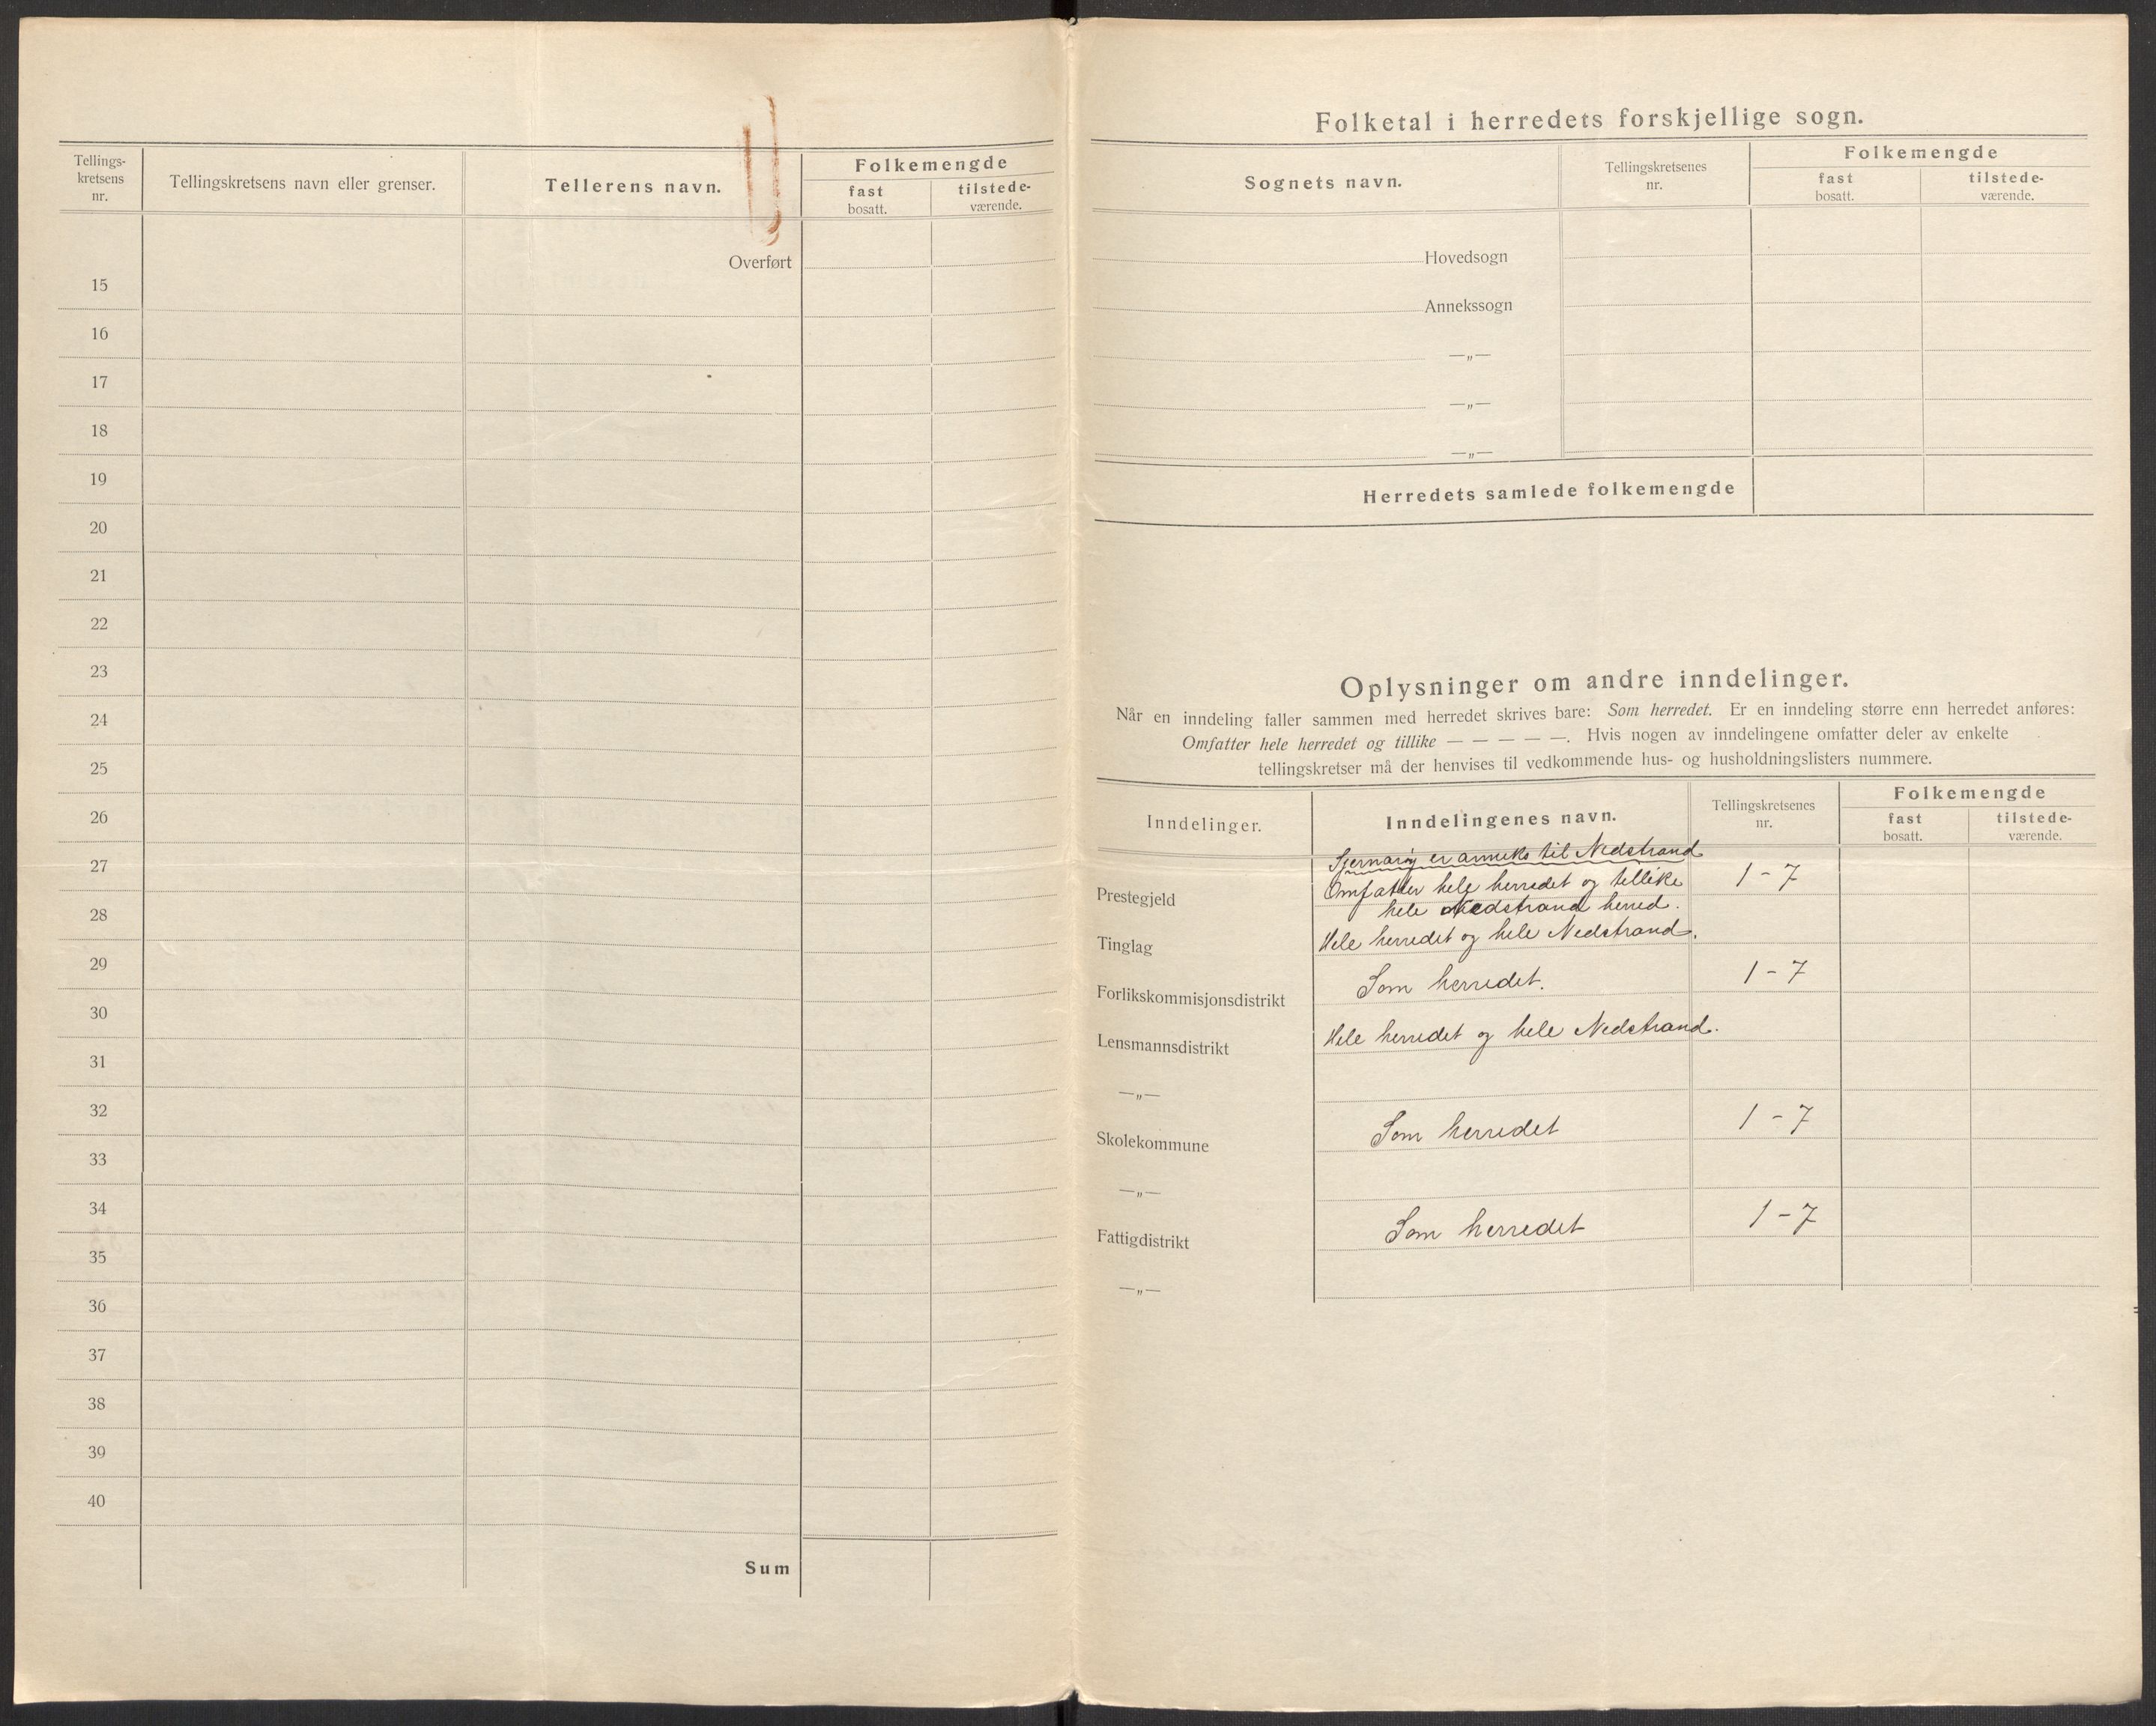 Tellings-
kretsens
nr.
Tellingskretsens navn eller grenser.
Tellerens navn.
Folkemengde
fast
bosatt.
tilstede-
værende.
Overført
15
16
17
18
19
20
21
22
23
24
25
26
27
28
29
30
31
32
33
34
35
36
37
38
39
40
Sum
Folketal i herredets forskjellige sogn.
Sognets navn.
Tellingskretsenes
nr.
Folkemengde
fast
bosatt.
tilstede-
værende.
Hovedsogn
Annekssogn
—„—
—„—
—„—
Herredets samlede folkemengde
Oplysninger om andre inndelinger.
Når en inndeling faller sammen med herredet skrives bare: Som herredet. Er en inndeling større enn herredet anføres:
Omfatter hele herredet og tillike — — — — —. Hvis nogen av inndelingene omfatter deler av enkelte
tellingskretser må der henvises til vedkommende hus- og husholdningslisters nummere.
Inndelinger.
Inndelingenes navn.
Tellingskretsenes
nr.
Folkemengde
fast
bosatt.
tilstede-
værende.
Sjernarøy er anneks til Nedstrand
Prestegjeld Omfatter hele herredet og tillike 1-7
hele Nedstrand herred.
Tinglag Hele herredet og hele Nedstrand.
Forlikskommisjonsdistrikt Som herredet. 1-7
Lensmannsdistrikt Hele herredet og hele Nedstrand.
—„—
Skolekommune Som herredet 1-7
—„—
Fattigdistrikt Som herredet 1-7
—„—